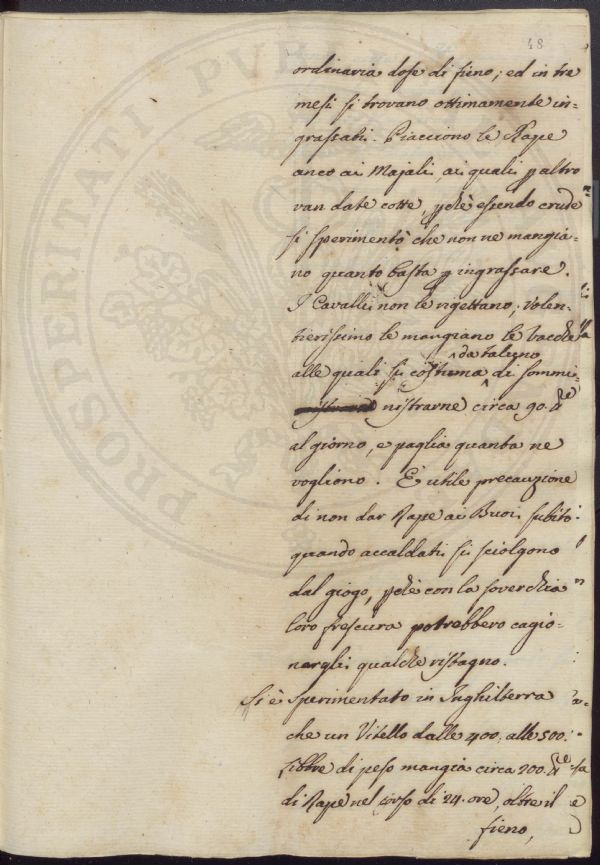 48
ordinaria dose di fieno; ed in tre
mesi si trovano ottimamente in=
grassati. Piacciono le Rape
anco ai Majali, ai quali p altro
van date cotte, pchè essendo crude
si sperimentò che non ne mangia-
no quanto basta p ingrassare.
I Cavalli non le rigettano; volen-
tierissimo le mangiano le Vacche
da taluno
alle quali si costuma di sommi-
nistrarne circa 90. lbre
al giorno, e paglia quanta ne
vogliono. È utile precauzione
di non dar Rape ai Buoi subito
quando accaldati si sciolgono
dal giogo, pchè con la soverchia
loro frescura potrebbero cagio-
nargli qualche ristagno.
Si è sperimentato in Inghilterra
che un Vitello dalle 400. alle 500.
Libbre di peso mangia circa 200. lbre
di Rape nel corso di 24. ore, oltre il
fieno,
PROSPERITATI PUBLICAE